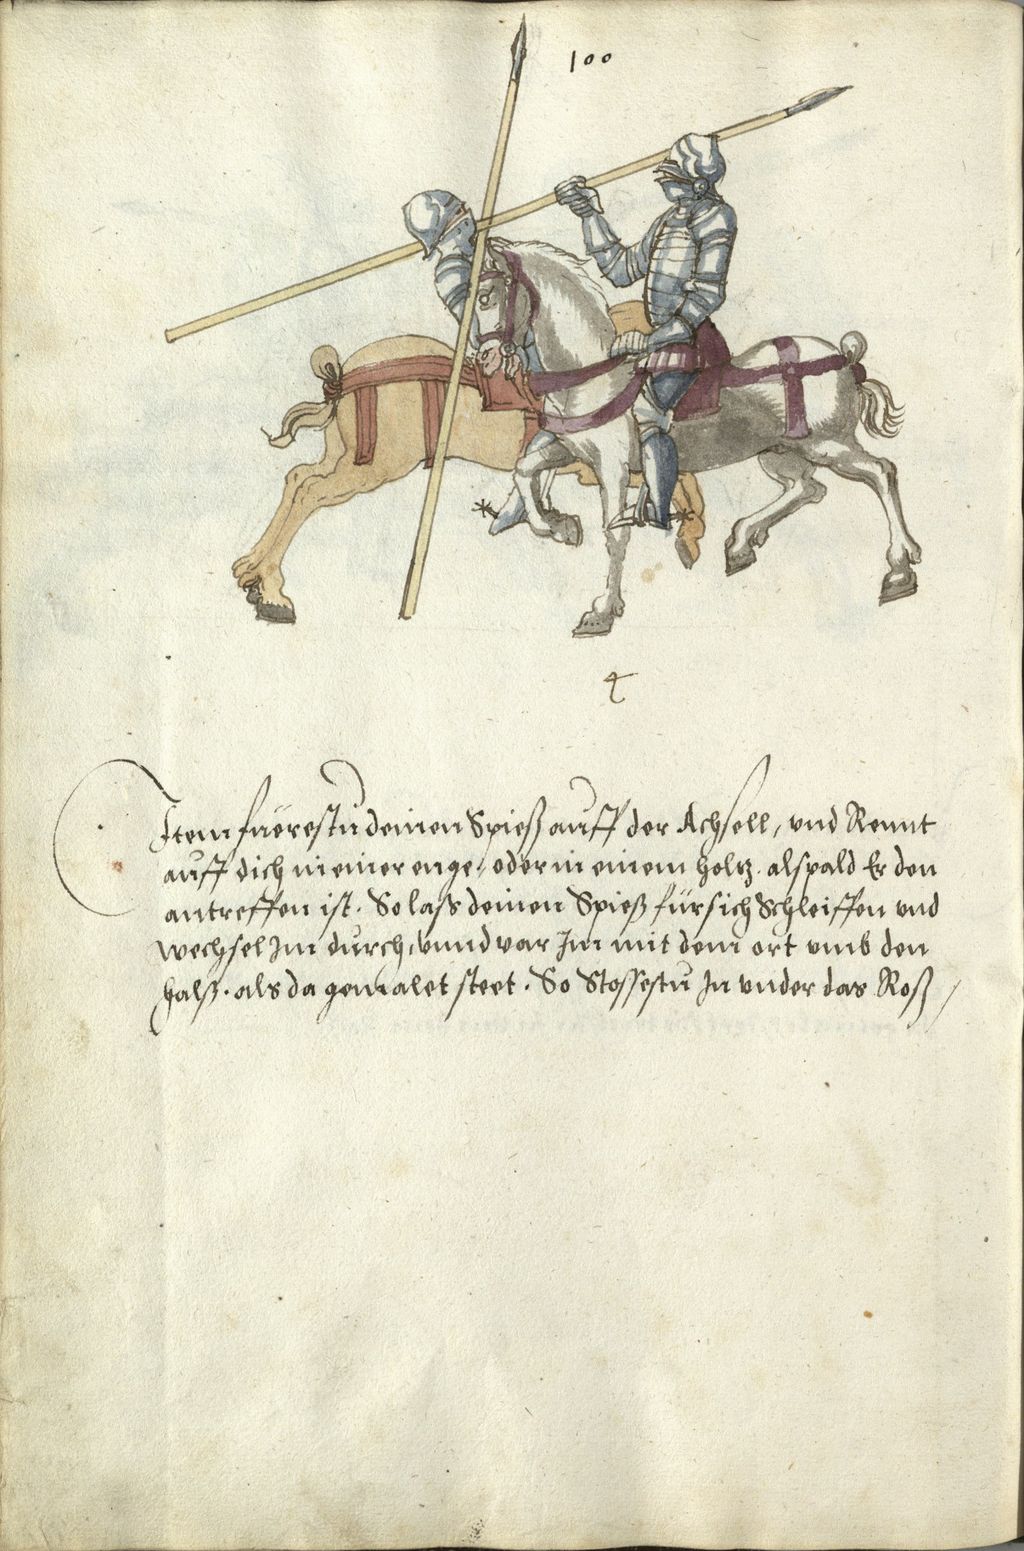 100
4
Item füerestu deinen Spieß auff der Achsell, und Rennt
auff dich in einer enge, oder in einem holtz. alspald Er den
antreffen ist. So lass deinen Spieß für sich Schleiffen vnd
wechsel Im durch, vnnd var Im mit dem ort vmb den
halß. als da gemalet steet. So Stossestu In vnder das Roß